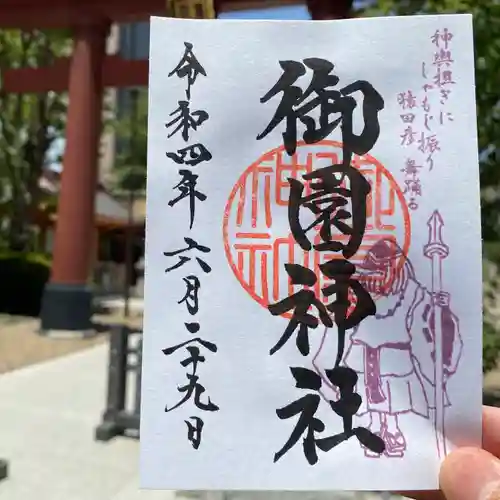 神輿担ぎに
しゃもじ振り
猿田彦 舞踊る
御園神社
令和四年六月二十九日